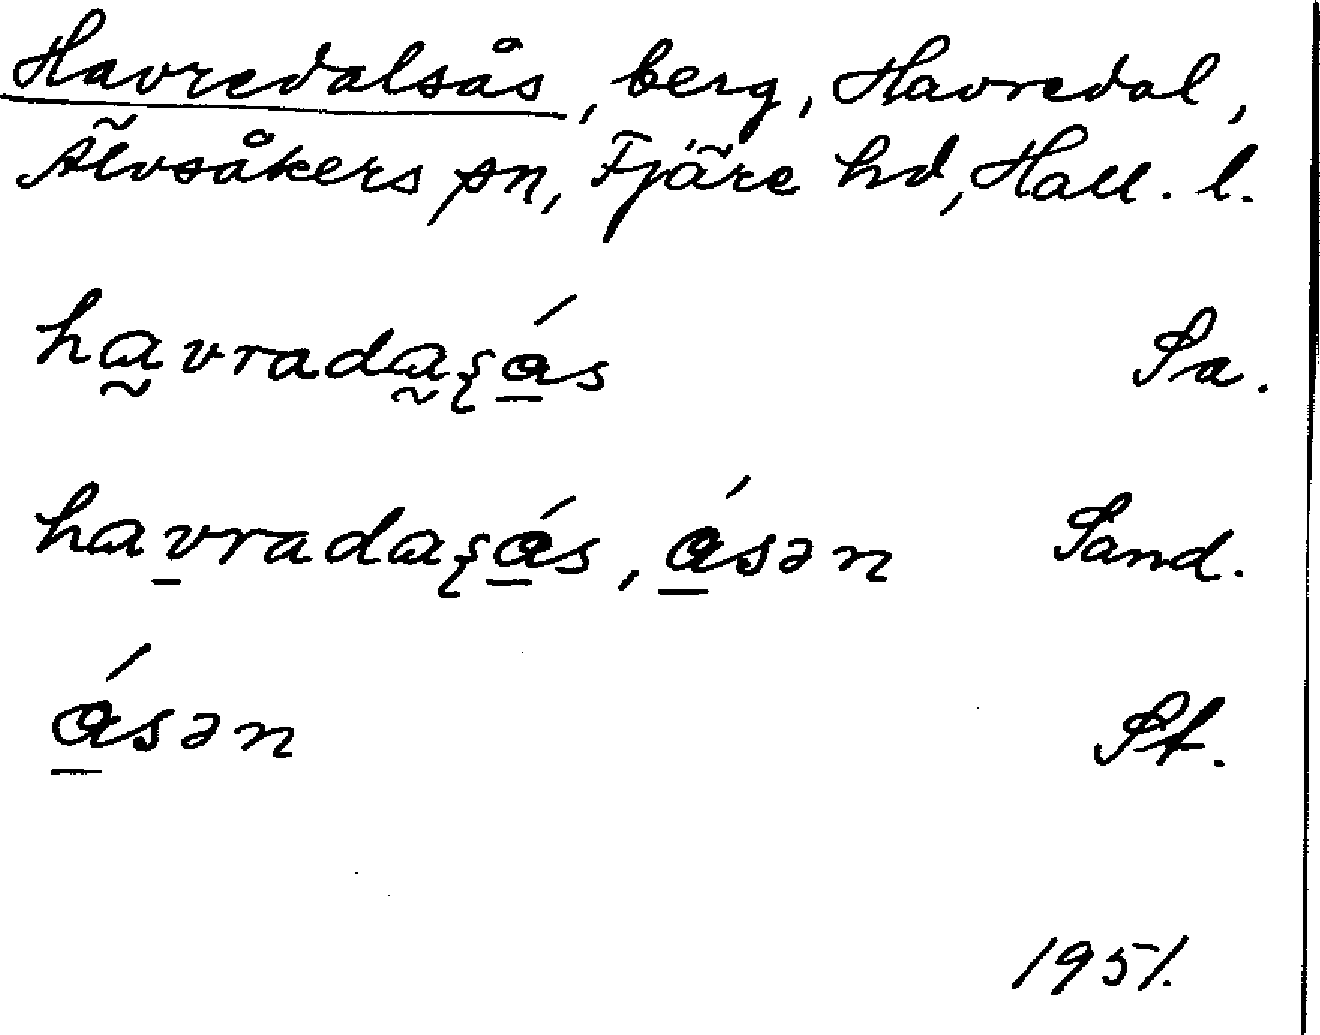 Havredalsås, berg, Havredal,
Älvsåkers sn, Fjäre hd, Hall. l.
ha̰vrada̰ʂá̱s Sa.
hav̱radaʂá̱s, á̱sən Sand.
á̱sən St.
1951.